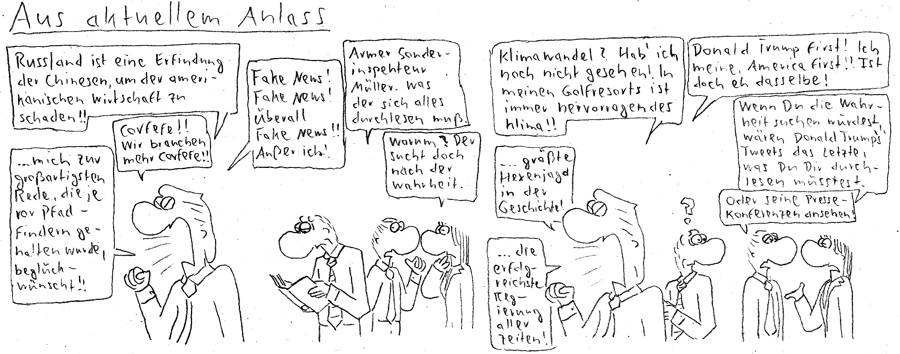 Aus aktuellem Anlass
Russland ist eine Erfindung
der Chinesen, um der ameri-
kanischen Wirtschaft zu
schaden!!
Covfefe!!
Wir brauchen
mehr Covfefe!!
...mich zur
großartigsten
Rede, die je
vor Pfad-
findern ge-
halten wurde,
beglück-
wünscht!!
Fake News!
Fake News!
Überall
Fake News!!
Außer ich!
Armer Sonder-
inspekteur
Müller. Was
der sich alles
durchlesen muß.
Warum? Der
sucht doch
nach der
Wahrheit.
Klimawandel? Hab' ich
noch nicht gesehen! In
meinen Golfresorts ist
immer hervorragendes
Klima!!
...größte
Hexenjagd
in der
Geschichte!
...die
erfolg-
reichste
Reg-
ierung
aller
Zeiten!
Donald Trump First! Ich
meine, America First!! Ist
doch eh dasselbe!
?
Wenn Du die Wahr-
heit suchen würdest,
wären Donald Trump's
Tweets das Letzte,
was Du Dir durch-
lesen müsstest.
Oder seine Presse-
Konferenzen ansehen!